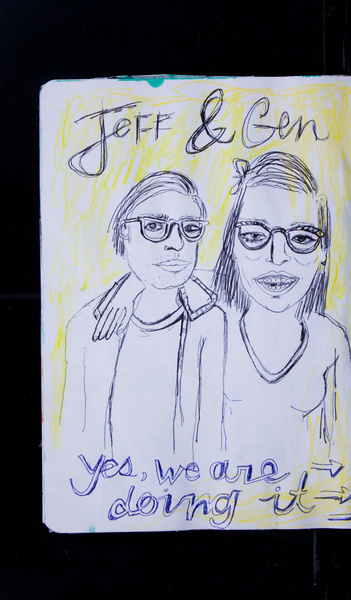 Jeff & Gen
yes, we are →
doing it →